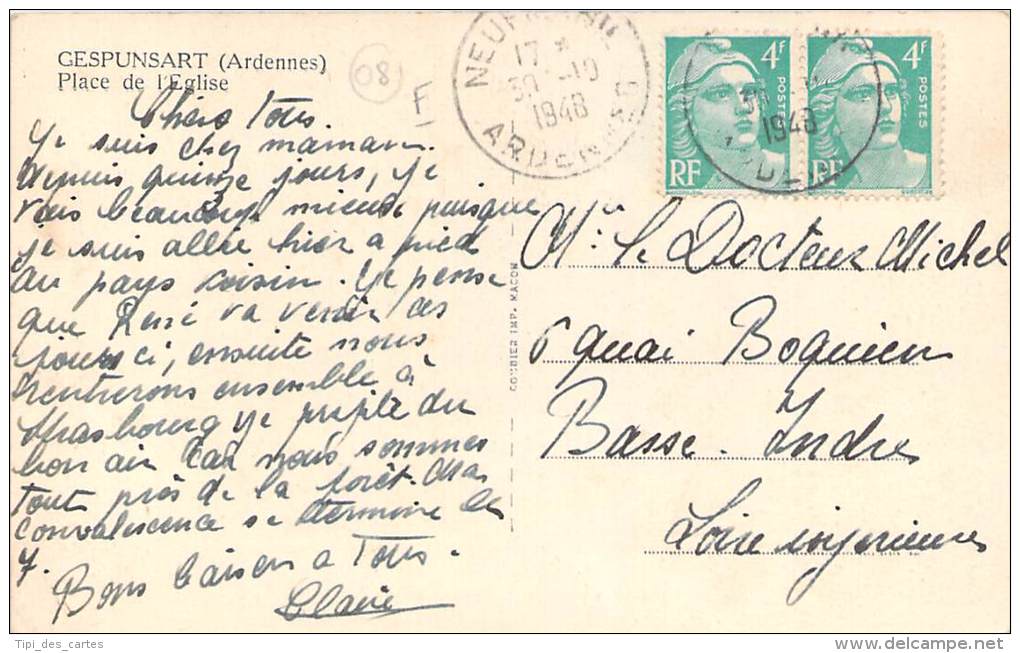 GESPUNSART (Ardennes)
Place de l'Eglise
08
F
17 *
30 -10
1948
ARDENNES
4F
POSTES
RF
4F
POSTES
RF
1948
Chers Tous.
Je suis chez maman.
depuis quinze jours, je
vais beaucoup mieux puisque
je suis allée hier a pied
au pays voisin. Je pense
que René va venir ces
jours ci, ensuite nous
rentrerons ensemble à
Strasbourg je profite du
bon air car nous sommes
tout près de la forêt. Ma
convalescence se termine le
7.
Bons baisers a Tous.
Claire
COMBIER IMP. MACON
Mr. le Docteur Michel
6 quai Boquien
Basse-Indre
Loire inférieure
Tipi_des_cartes
www.delcampe.net